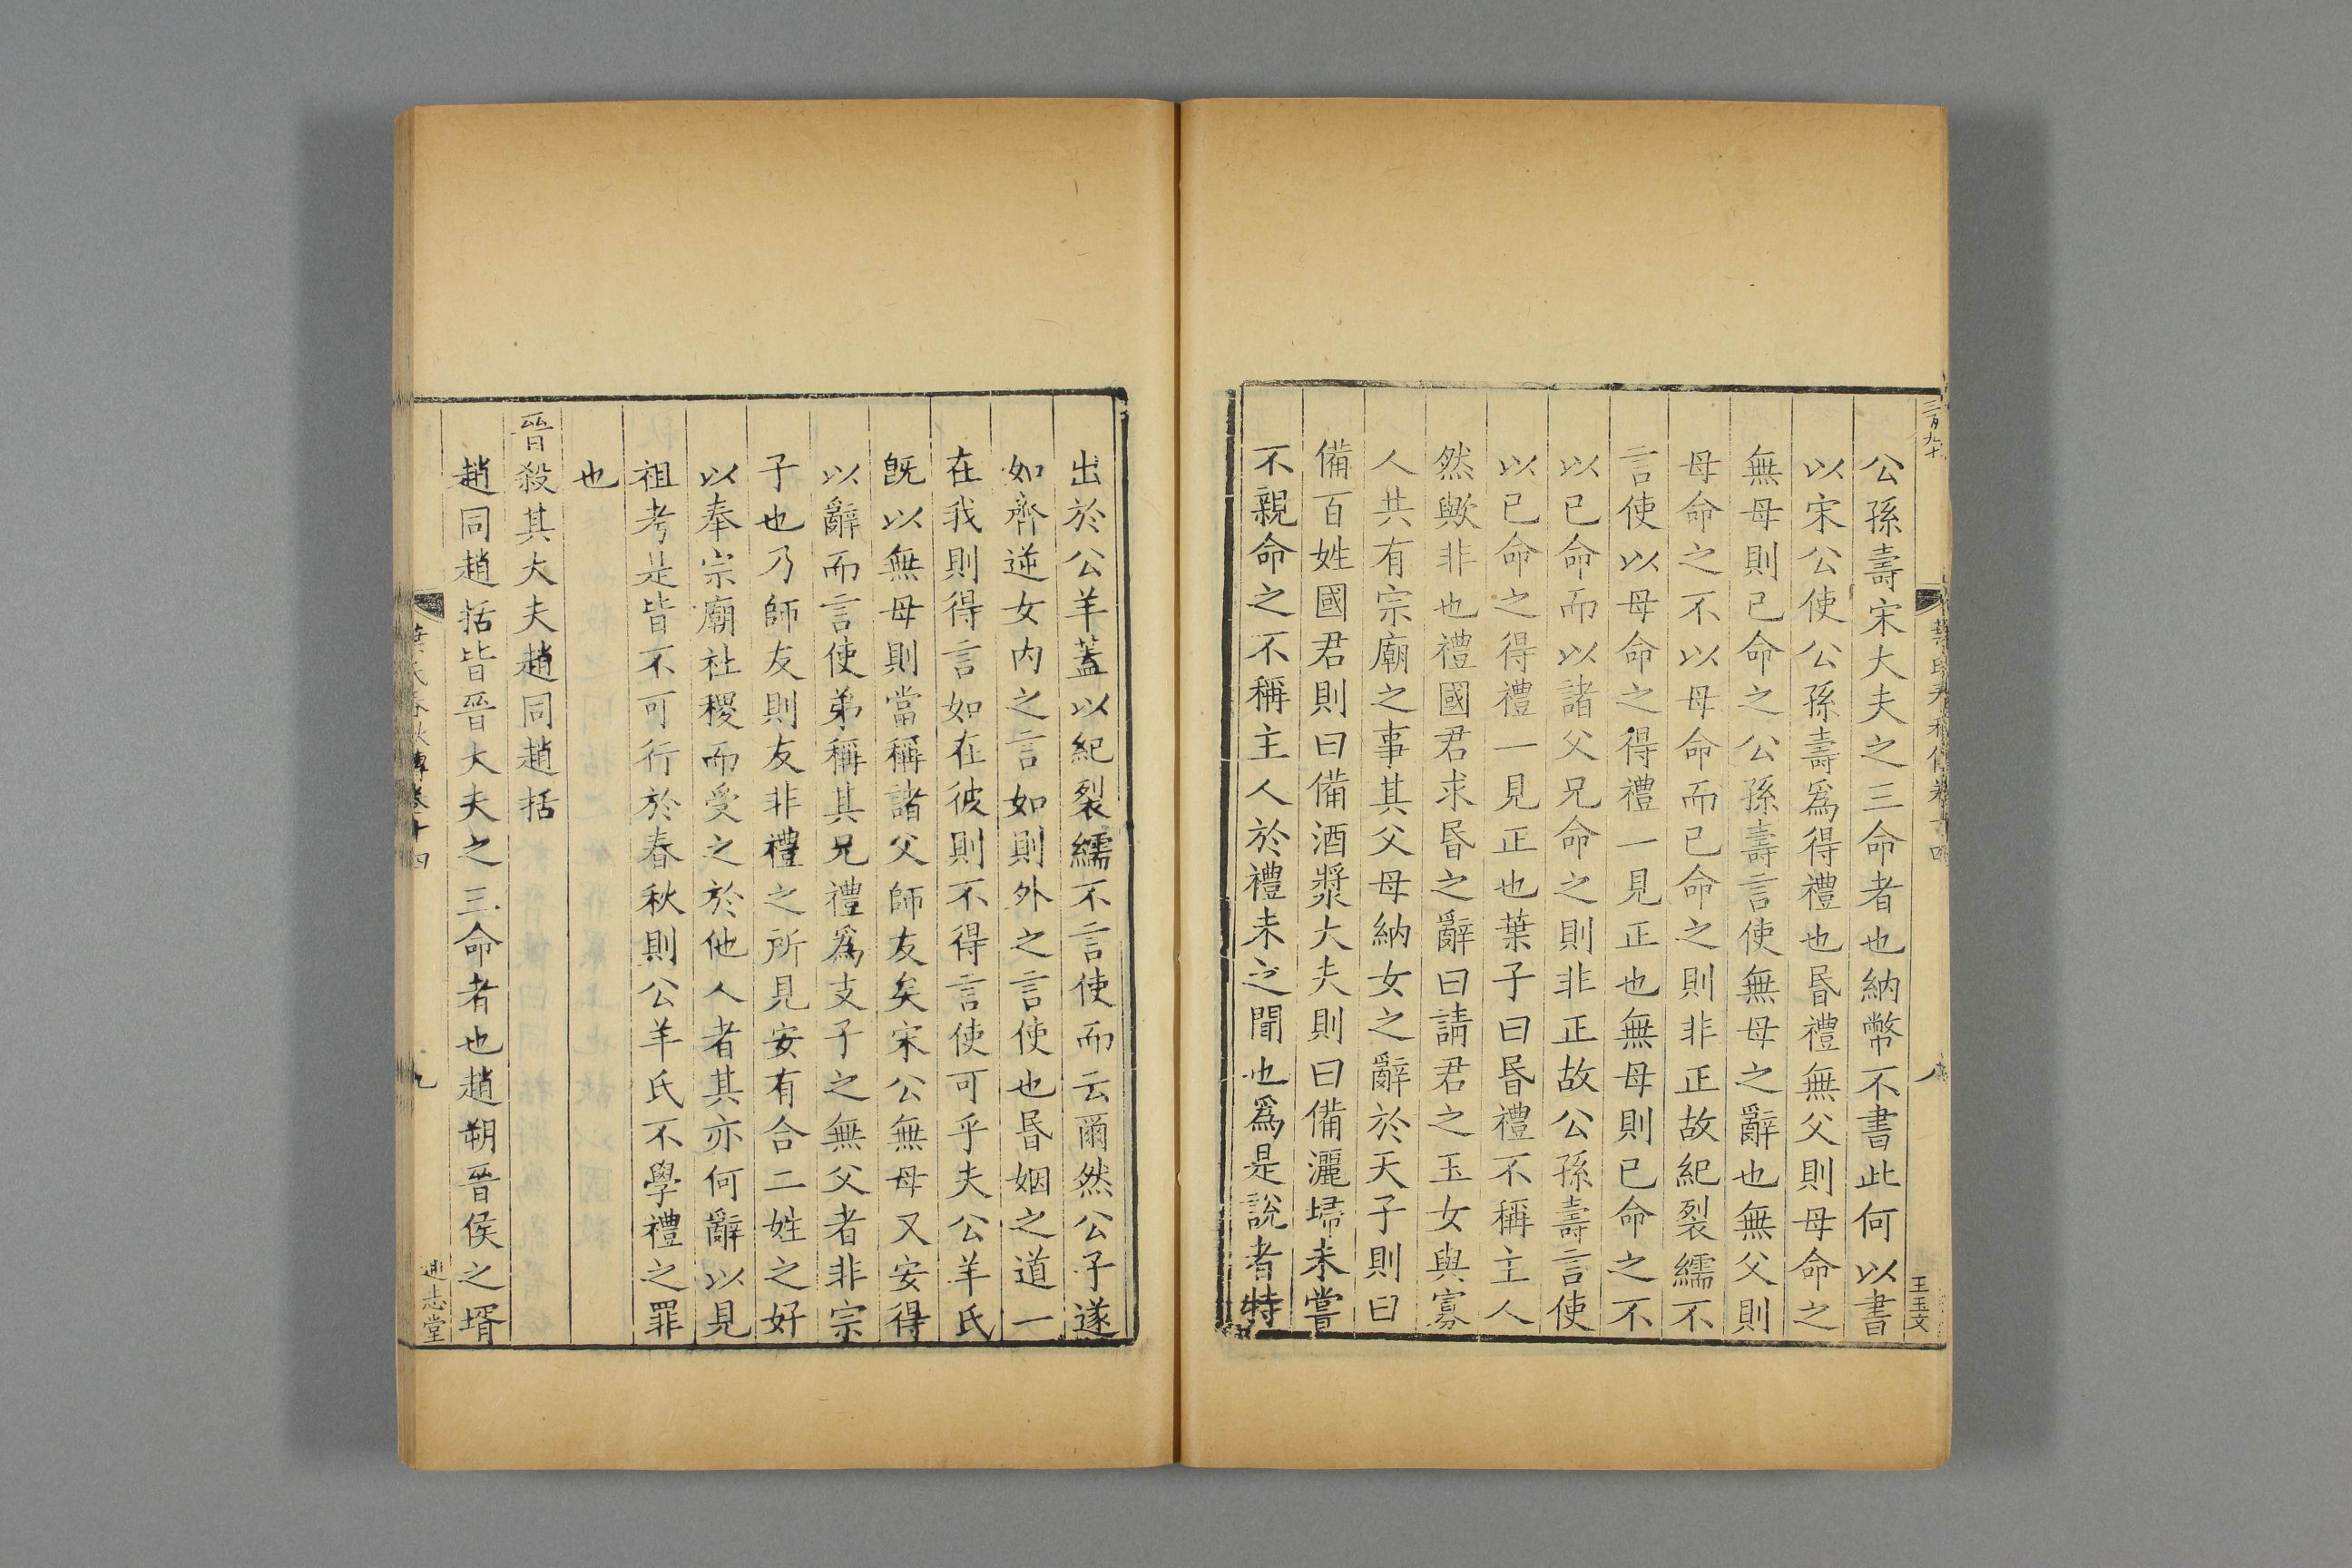 三百九十
葉氏春秋傳卷十四
八
王玉文
公孫壽宋大夫之三命者也納幣不書此何以書
以宋公使公孫壽爲得禮也昬禮無父則母命之
無母則已命之公孫壽言使無母之辭也無父則
母命之不以母命而已命之則非正故紀裂繻不
言使以母命之得禮一見正也無母則已命之不
以已命而以諸父兄命之則非正故公孫壽言使
以已命之得禮一見正也葉子曰昬禮不稱主人
然歟非也禮國君求昬之辭曰請君之玉女與寡
人共有宗廟之事其父母納女之辭於天子則曰
備百姓國君則曰備酒漿大夫則曰備灑埽未嘗
不親命之不稱主人於禮未之聞也爲是說者特
出於公羊蓋以紀裂繻不言使而云爾然公子遂
如齊逆女内之言如則外之言使也昬姻之道一
在我則得言如在彼則不得言使可乎夫公羊氏
旣以無母則當稱諸父師友矣宋公無母又安得
以辭而言使弟稱其兄禮爲支子之無父者非宗
子也乃師友則友非禮之所見安有合二姓之好
以奉宗廟社稷而受之於他人者其亦何辭以見
祖考是皆不可行於春秋則公羊氏不學禮之罪
也
晉殺其大夫趙同趙括
趙同趙括皆晉大夫之三命者也趙朔晉侯之壻
葉氏春秋傳卷十四
九
通志堂